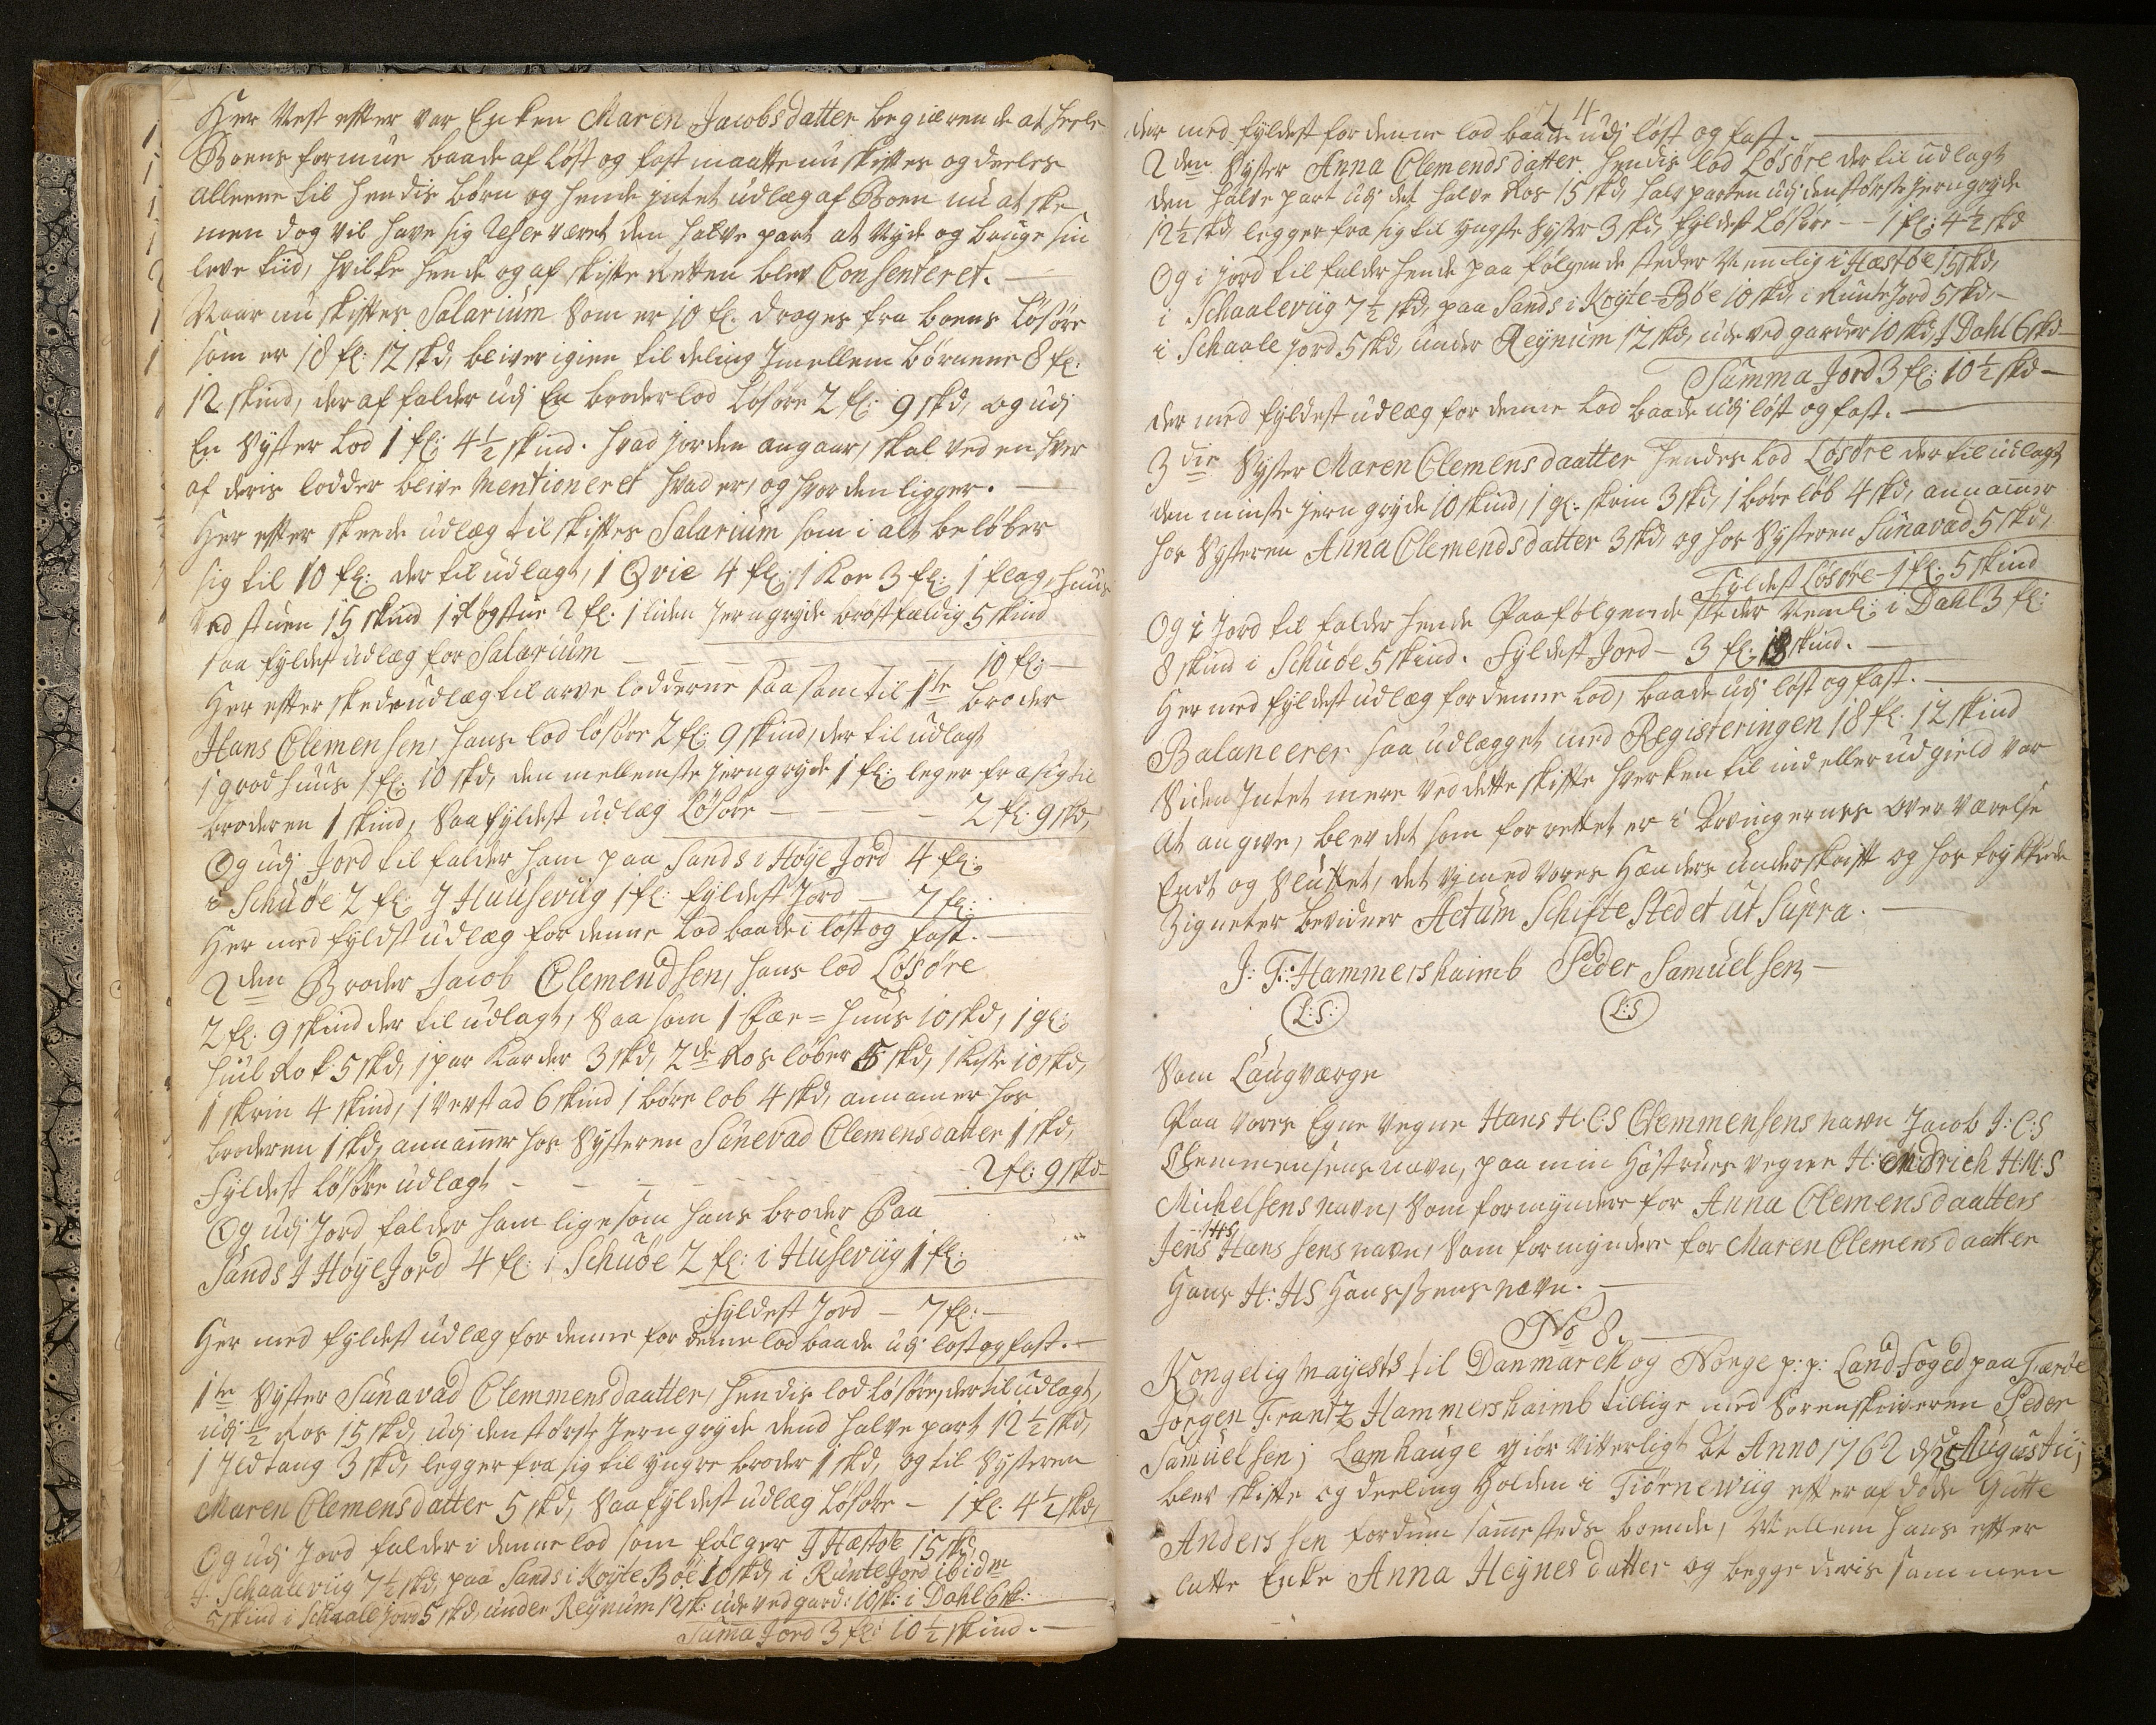 Her Nest efter var Enken Maren Jacobsdatter begiærende at heele
Boens formue baade af løst og fast maatte nu skiftes og deeles
alleene til hendis børn og hende intet udlæg af Boen nu at ske
men dog vil have sig Reserveret den halve part at Nyde og bruge sin
leve tiid, hvilke hende og af skifte Retten blev Consenteret. —
Naar nu skiftes Salarium Som er 10 fl. drages fra boens Løsøre
som er 18 fl: 12 skd, bliver igien til deling Imellem børnene 8 fl:
12 skind, der af falder udj En broder lod Løsøre 2 fl: 9 skd, og udj
En Syster Lod 1 fl: 4½ skind. hvad jorden angaar, skal ved en hver
af deris lodder blive Mentioneret hvad er, og hvor den ligger. —
Her efter skeede udlæg til skiftes Salarium som i alt beløber
sig til 10 fl: der til udlagt, 1 Qvie 4 fl: 1 Koe 3 fl: 1 flag, huus
ved stuen 15 skind 1 Røgstue 2 fl: 1 liden Jerngryde brøstfældig 5 skind
saa fyldest udlæg for Salarium — — 10 fl: —
Her efter skede udlæg til arve lodderne saasom til 1te broder
Hans Clemensen, hans lod løsøre 2 fl: 9 skind, der til udlagt
1 grod huus 1 fl: 10 skd, den mellemste jerngryde 1 fl: leger fra sig til
broderen 1 skind, Saa fyldest udlæg Løsøre — — — 2 fl: 9 skd,
Og udj Jord til falder ham paa Sands i Høye Jord 4 fl:
i Schuøe 2 fl: J Hüuseviig 1 fl: fyldest Jord — 7 fl:
Her med fyldst udlæg for denne Lod baade i løst og fast. —
2den Broder Jacob Clemendsen, hans lod Løsøre
2 fl: 9 skind der til udlagt, Saa som 1 Fae-huus 10 skd, 1 gl:
huul Rok 5 skd, 1 par Karder 3 skd, 2de Ros løber 5 skd, 1 Kiste 10 skd,
1 skrin 4 skind, 1 Verstad 6 skind 1 børe lob 4 skd, annamer hos
broderen 1 skd, annamer hos Systeren Sünevad Clemensdatter 1 skd,
fyldest løsøre udlagt — — — — 2 fl: 9 skd —
Og udj Jord falder ham ligesom hans broder Paa
Sands J Høye Jord 4 fl: i Schuøe 2 fl: i Huseviig 1 fl:
fyldest Jord — 7 fl: —
Her med fyldest udlæg for denne for denne lod baade udj løst og fast. —
1te Syster Sünavad Clemmensdaatter, hendis lod løsøre, der til udlagt,
udj ½ Ros 15 skd, udj den største Jerngryde dend halve part 12½ skd,
1 Ildtang 3 skd, legger fra sig til yngre broder 1 skd, og til Systeren
Maren Clemensdatter 5 skd, Saa fyldest udlæg Løsøre — 1 fl: 4½ skd,
Og udj Jord falder i denne lod som følger J Hæstøe 15 skd,
J Schaaleviig 7½ skd, paa Sands i Koyte Bøe 10 skd, i Runte Jord ibidm
5 skind i Schaale jord 5 skd, under Reynum 12 sk: ude ved gard: 10 sk: i Dahl 6 sk:
Suma Jord 3 fl: 10½ skind. —
24
der med fyldest for denne lod baade udj løst og fast. —
2den Syster Anna Clemendsdatter hendis lod Løsøre der til udlagt
den halve part udj det halve Ros 15 skd, halv parten udj den største jerngryde
12½ skd, legger fra sig til yngste Syster 3 skd, fyldest Løsøre — 1 fl: 4½ skd
Og i jord til falder hende paa følgende steder Nemlig i Hæstøe 15 skd,
i Schaaleviig 7½ skd, paa Sands i Koyte-Bøe 10 skd, i Runte Jord 5 skd, —
i Schaale jord 5 skd, under Reynum 12 skd, ude ved garder 10 skd, J Dahl 6 skd
Summa Jord 3 fl: 10½ skd —
der med fyldest udlæg for denne Lod baade udj løst og fast. —
3die Syster Maren Clemensdaatter hendes Lod Løsøre der til udlagt
den minste jerngryde 10 skind, 1 gl. skrin 3 skd, 1 børe løb 4 skd, annamer
hos Systeren Anna Clemendsdatter 3 skd, og hos Systeren Sünavad 5 skd,
Fyldest Løsøre — 1 fl: 5 skind
Og i Jord til falder hende Paa følgende steder Neml: i Dahl 3 fl:
8 skind i Schuøe 5 skind. Fyldest Jord — 3 fl: 13 skind. —
Her med fyldest udlæg for denne Lod, baade udj løst og fast. —
Balancerer saa udlægget med Registeringen 18 fl: 12 skind
Siden Intet mere ved dette skifte hverken til ind eller udgield var
At angive, blev det som forrettet er i Arvingernes overværelse
Endt og Sluttet, det vj med vores Hænders underskrift og hos trykkede
Zigneter bevidner Actum Schifte Stedet ut Supra. —
J: F: Hammershaimb Peder Samuelsen —
L:S: L:S
Som Laugværge
Paa vores Egne vegne Hans H.C.S Clemmensens navn Jacob J:C:S
Clemmensens navn, paa min Høstrues vegne Hendrich H.M.S
Michelsens navn, Som formyndere for Anna Clemensdaatters
Jens JHS Hansens navn, Som formyndere for Maren Clemensdaatter
Hans H:HS Hanssens navn. —
No 8.
Kongelig Mayests til Danmarck og Norge p:p: Land foged paa Færøe
Jørgen Frantz Hammershaimb tillige med Sorenskriveren Peder
Samuelsen j Lamhauge giør vitterligt At Anno 1762 d 25 Augustij
blev skifte og deeling Holden i Tiørneviig efter afdøde Gutte
Anderssen fordum sammesteds boende, Mellem hans efter
latte Enke Anna Heynesdatter og begge deris sammen